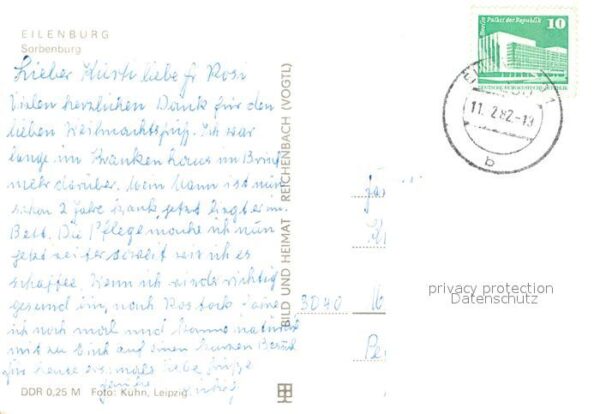 EILENBURG
Sorbenburg
Lieber Kurth liebe fr Rosi
Vielen herzlichen Dank für den
lieben Weihnachts Ich war
lange im Krankenhaus im Brief
mehr darüber. Mein Mann ist nun
schon 2 Jahre krank jetzt liegt er im
Bett. Die Pflege mache ich nun
jetzt weiter soweit wie ich es
schaffe. Wenn ich wieder richtig
gesund bin, nach Rostock fahre
ich noch mal und komme natürlich
mit zu auf einen kurzen Besuch
für heute erstmals liebe Grüße
DDR 0,25 M Foto: Kuhn, Leipzig
BILD UND HEIMAT REICHENBACH (VOGTL)
Palast der Republik
10
DEUTSCHE DEMOKRATISCHE REPUBLIK
11.2.82-13
b
3040
privacy protection
Datenschutz